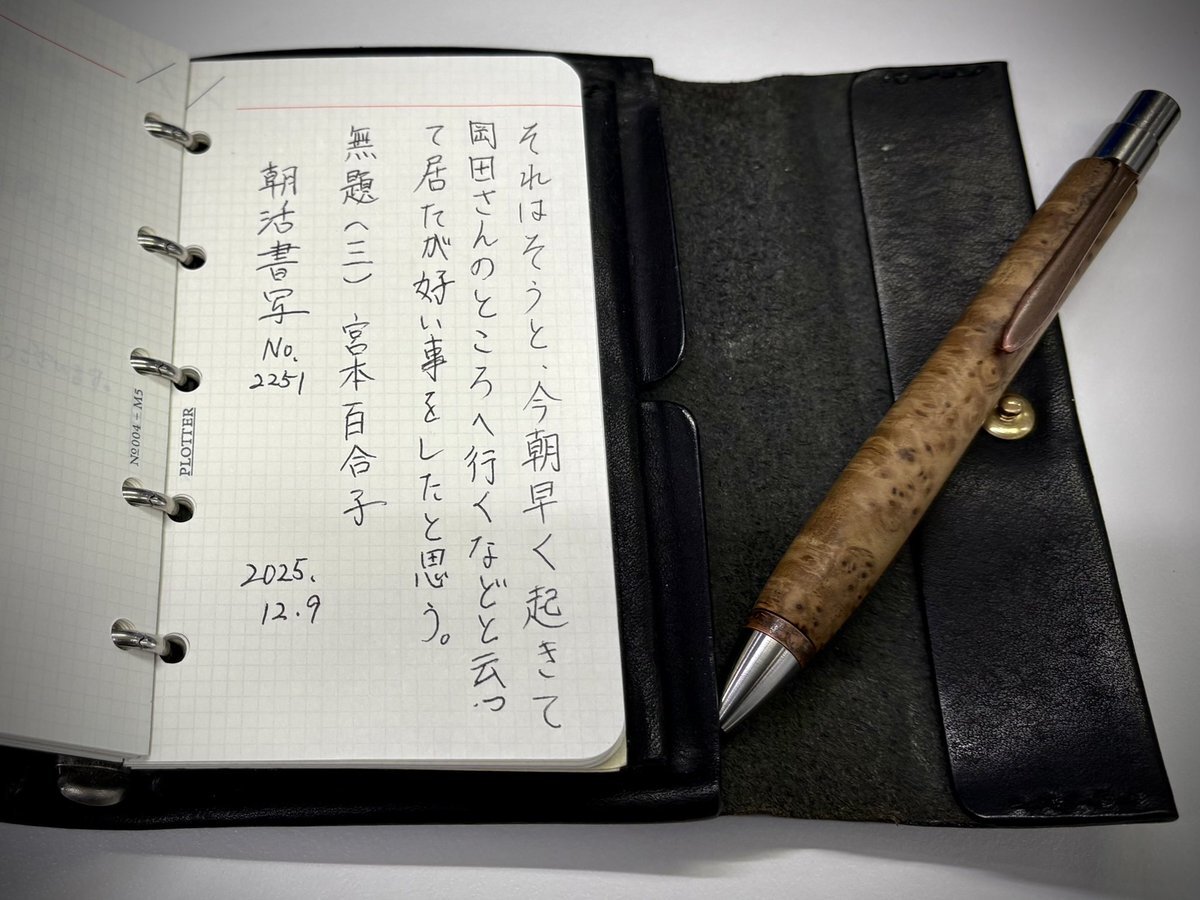 それはそうと、今朝早く起きて
岡田さんのところへ行くなどと云っ
て居たが好い事をしたと思う。
無題(三) 宮本百合子
朝活書写
No.
2251
2025.
12.9
PLOTTER
Nº004 – M5